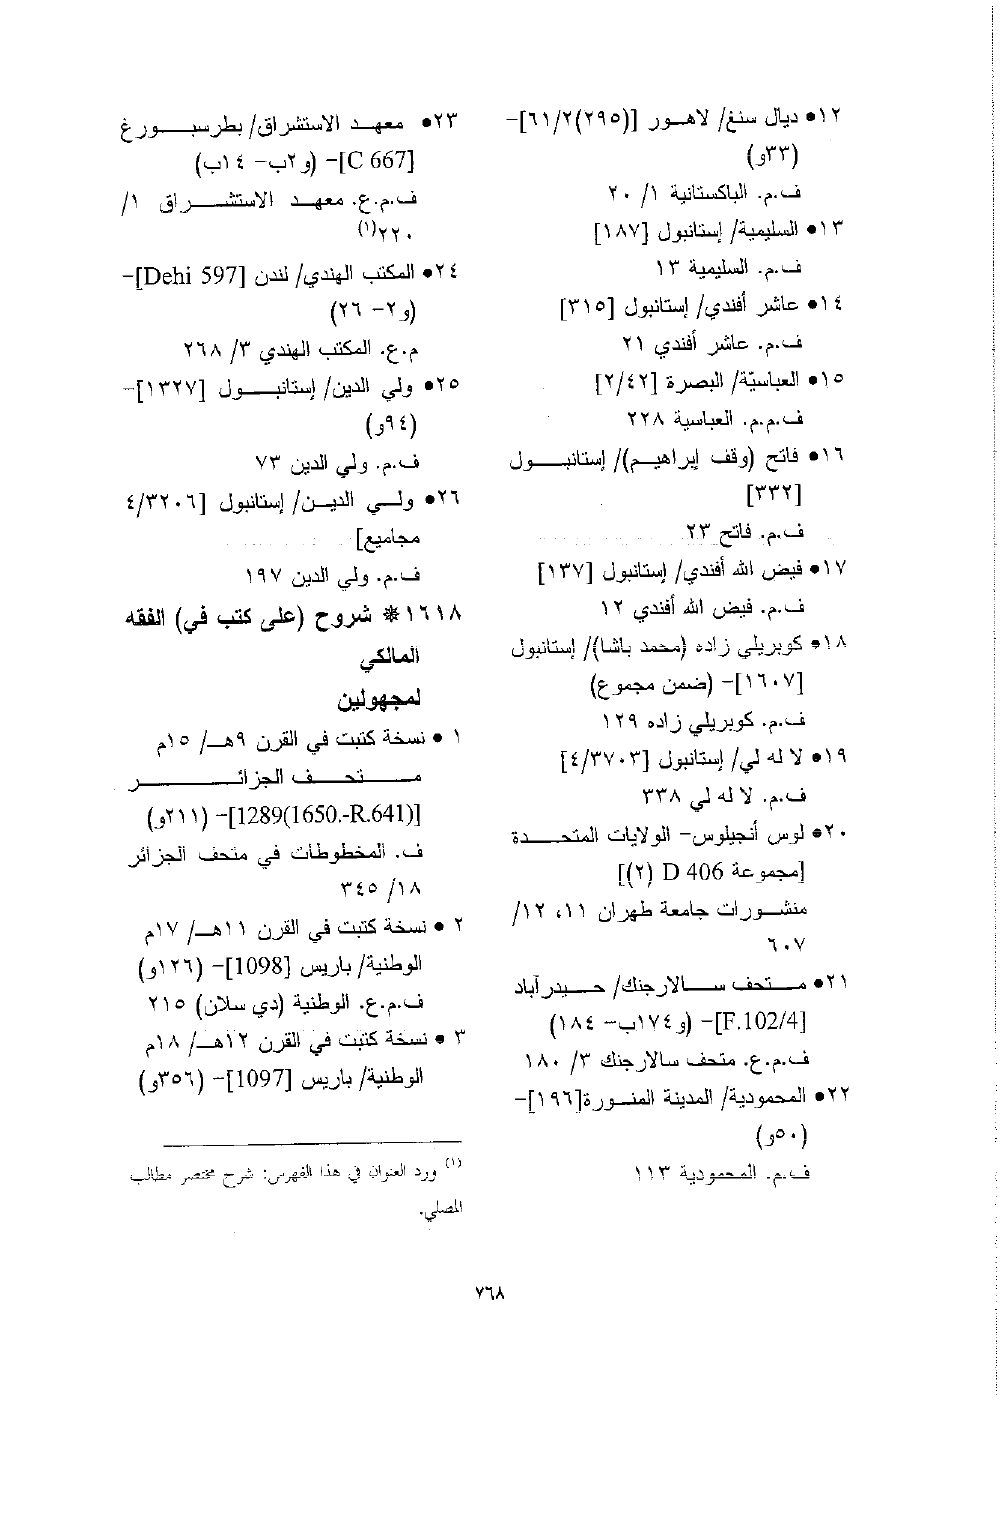 ١٢• ديال سنغ/ لاهور [(٢٩٥)٦١/٢]-
(٣٣و)
ف.م. الباكستانية ١/ ٢٠
١٣• السليمية/ إستانبول [١٨٧]
ف.م. السليمية ١٣
١٤• عاشر أفندي/ إستانبول [٣١٥]
ف.م. عاشر أفندي ٢١
١٥• العباسيّة/ البصرة [٢/٤٢]
ف.م.م. العباسية ٢٢٨
١٦• فاتح (وقف إبراهيم)/ إستانبول
[٣٣٢]
ف.م. فاتح ٢٣
١٧• فيض الله أفندي/ إستانبول [١٣٧]
ف.م. فيض الله أفندي ١٢
١٨• كوبريلي زاده (محمد باشا)/ إستانبول
[١٦٠٧]- (ضمن مجموع)
ف.م. كوبريلي زاده ١٢٩
١٩• لا له لي/ إستانبول [٤/٣٧٠٣]
ف.م. لا له لي ٣٣٨
٢٠• لوس أنجيلوس- الولايات المتحدة
[مجموعة D 406 (٢)]
منشورات جامعة طهران ١١، ١٢/
٦٠٧
٢١• متحف سالارجنك/ حيدرآباد
[F.102/4]- (و١٧٤ب- ١٨٤)
ف.م.ع. متحف سالارجنك ٣/ ١٨٠
٢٢• المحمودية/ المدينة المنورة[١٩٦]-
(٥٠و)
ف.م. المحمودية ١١٣
٢٣• معهد الاستشراق/ بطرسبورغ
[C 667]- (و٢ب- ١٤ب)
ف.م.ع. معهد الاستشراق ١/
٢٢٠(١)
٢٤• المكتب الهندي/ لندن [Dehi 597]-
(و٢- ٢٦)
م.ع. المكتب الهندي ٣/ ٢٦٨
٢٥• ولي الدين/ إستانبول [١٣٢٧]-
(٩٤و)
ف.م. ولي الدين ٧٣
٢٦• ولي الدين/ إستانبول [٤/٣٢٠٦
مجاميع]
ف.م. ولي الدين ١٩٧
١٦١٨* شروح (على كتب في) الفقه
المالكي
لمجهولين
١ • نسخة كتبت في القرن ٩هـ/ ١٥م
متحف الجزائر
[1289(1650.-R.641)]- (٢١١و)
ف. المخطوطات في متحف الجزائر
١٨/ ٣٤٥
٢ • نسخة كتبت في القرن ١١هـ/ ١٧م
الوطنية/ باريس [1098]- (١٢٦و)
ف.م.ع. الوطنية (دي سلان) ٢١٥
٣ • نسخة كتبت في القرن ١٢هـ/ ١٨م
الوطنية/ باريس [1097]- (٣٥٦و)
(١) ورد العنوان في هذا الفهرس: شرح مختصر مطالب
المصلي.
٧٦٨